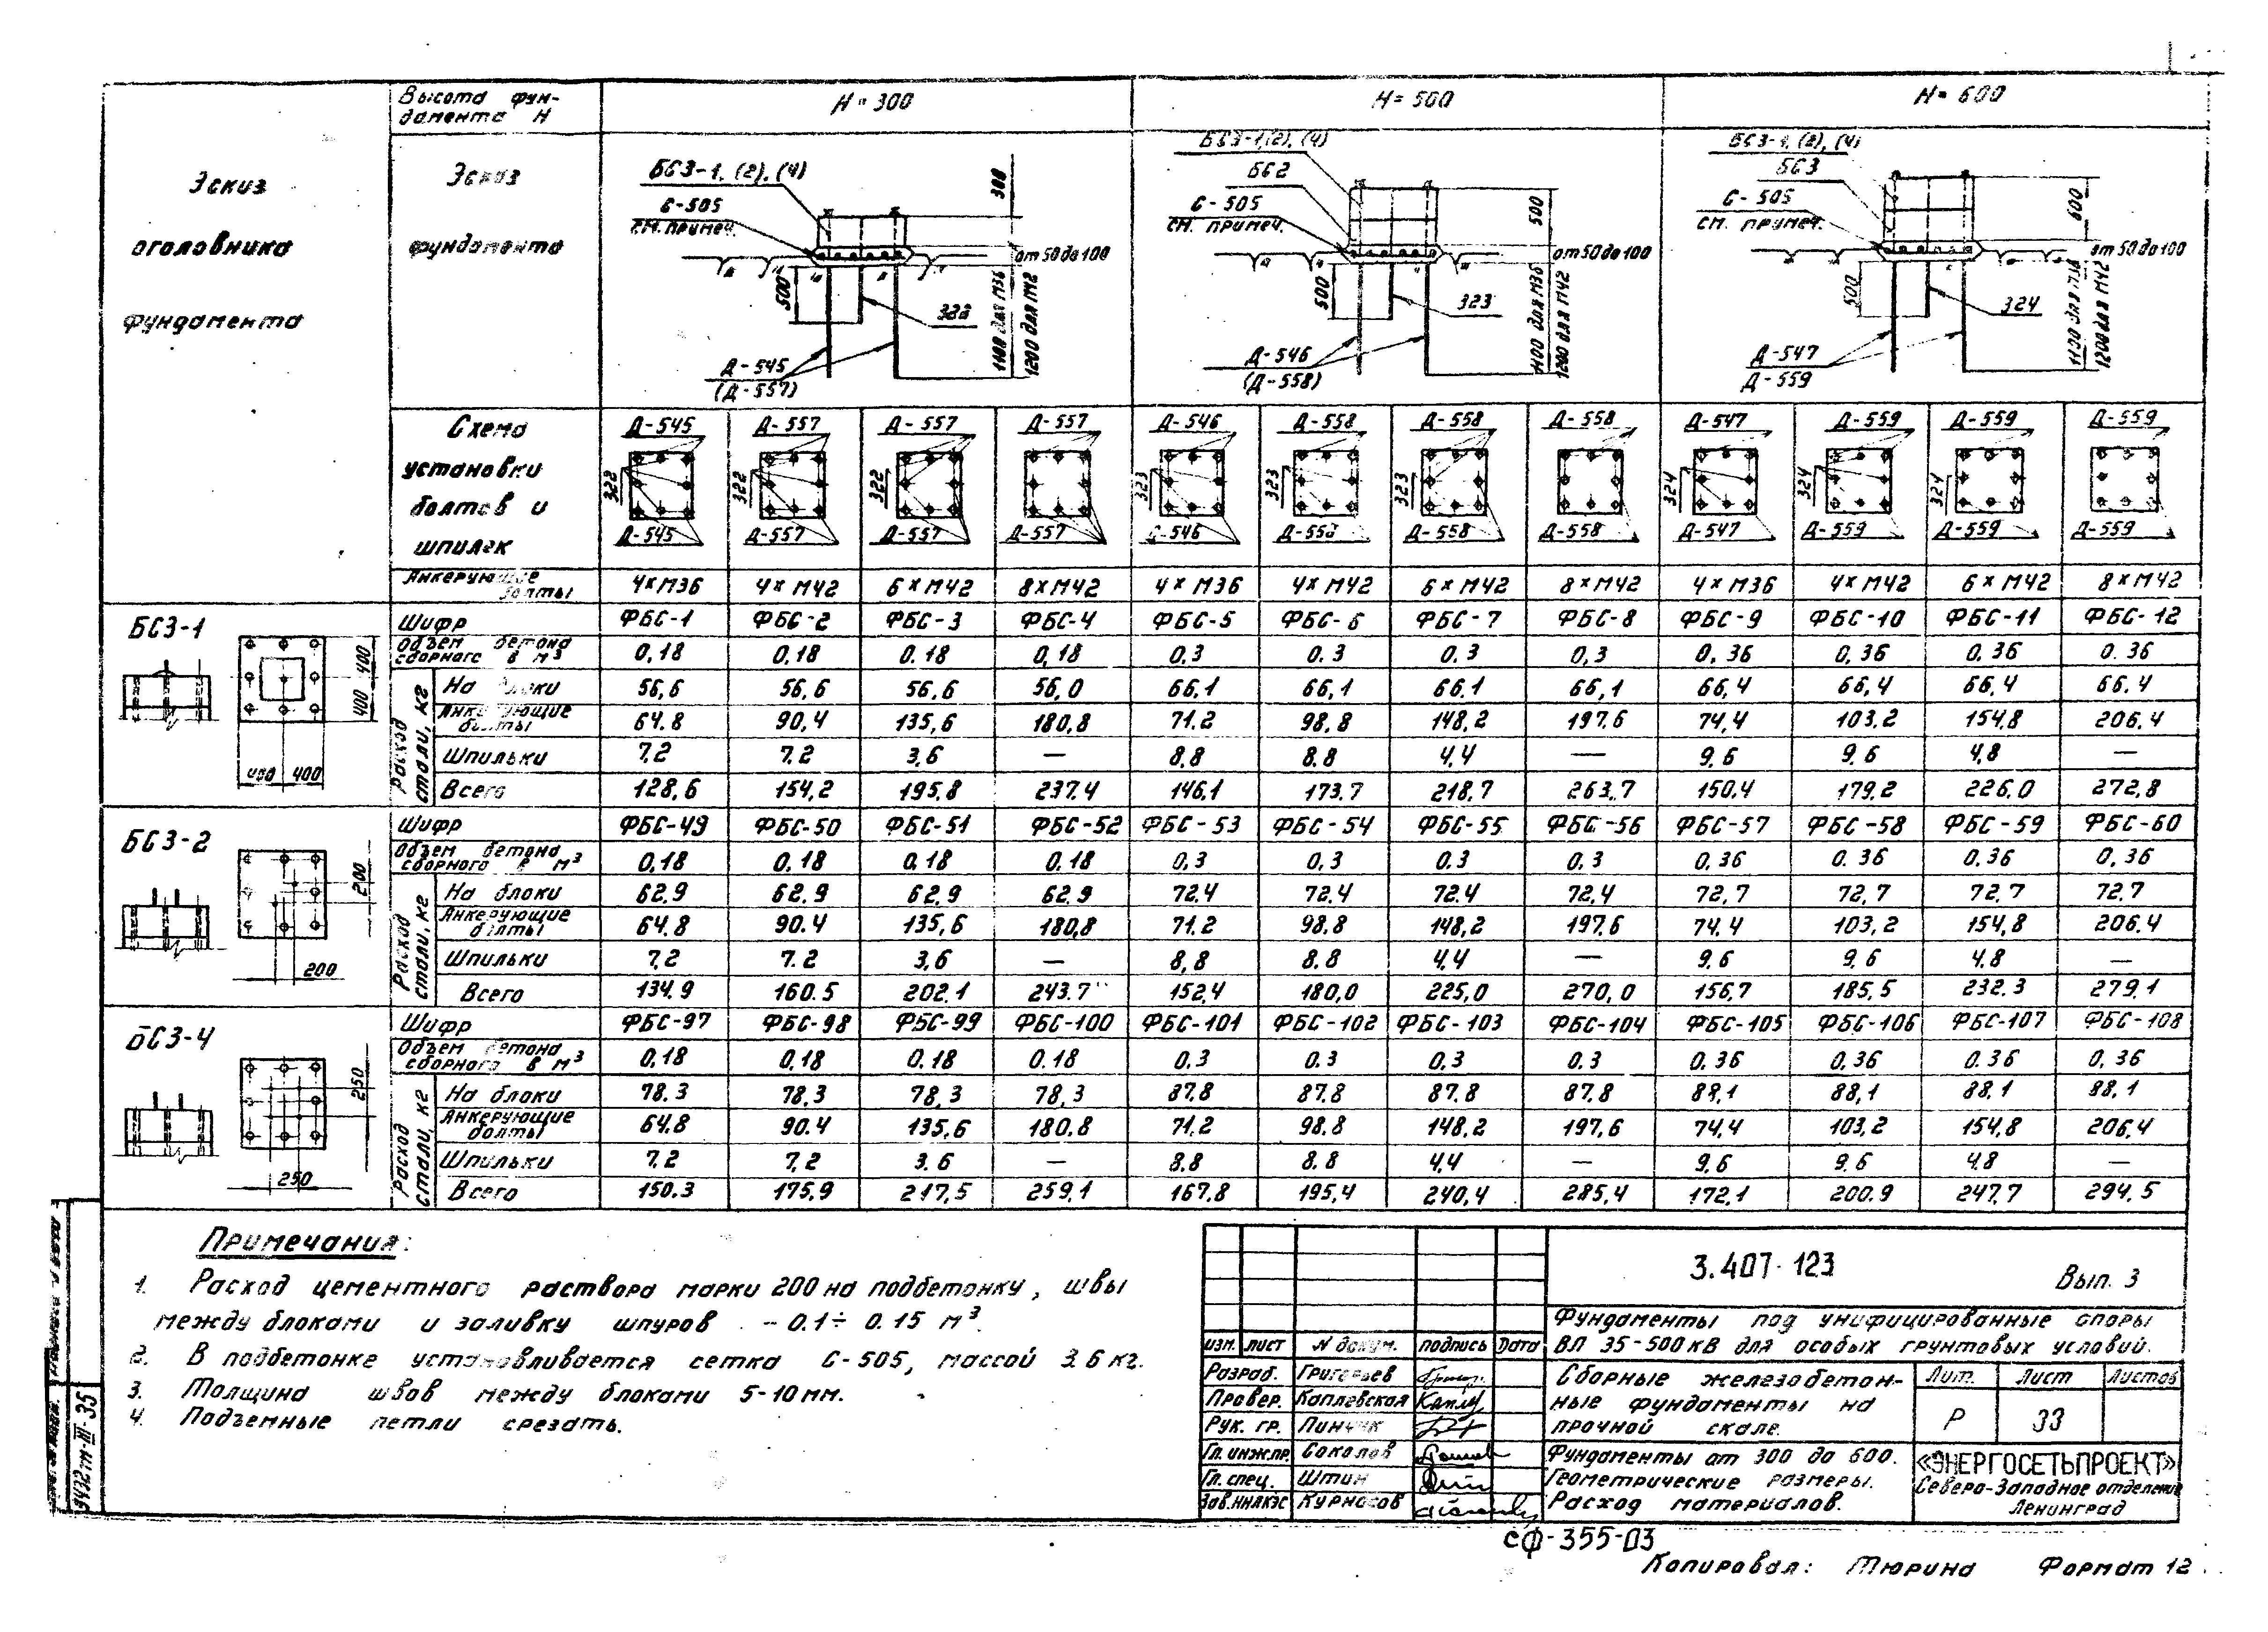 Высота фун-
дамента Н
Н = 300
Н = 500
Н = 600
Эскиз
оголовника
фундамента
Эскиз
фундамента
БС3-1, (2), (4)
С-505
см. примеч.
300
от 50 до 100
500
322
1100 для М36
1200 для М42
Д-545
(Д-557)
БС3-1,(2),(4)
БС2
С-505
см. примеч.
500
от 50 до 100
500
323
1100 для М36
1200 для М42
Д-546
(Д-558)
БС3-1,(2),(4)
БС3
С-505
см. примеч.
600
от 50 до 100
500
324
1100 для М36
1200 для М42
Д-547
Д-559
Схема
установки
болтов и
шпилек
Д-545 Д-557 Д-557 Д-557 Д-546 Д-558 Д-558 Д-558 Д-547 Д-559 Д-559 Д-559
322 322 322 323 323 323 324 324 324
Д-545 Д-557 Д-557 Д-557 Д-546 Д-558 Д-558 Д-558 Д-547 Д-559 Д-559 Д-559
Анкерующие
болты 4×М36 4×М42 6×М42 8×М42 4×М36 4×М42 6×М42 8×М42 4×М36 4×М42 6×М42 8×М42
БС3-1
400 400
400 400
Шифр ФБС-1 ФБС-2 ФБС-3 ФБС-4 ФБС-5 ФБС-6 ФБС-7 ФБС-8 ФБС-9 ФБС-10 ФБС-11 ФБС-12
Объем бетона
сборного в м³ 0,18 0,18 0.18 0,18 0.3 0.3 0.3 0,3 0,36 0,36 0.36 0.36
Расход
стали, кг
На блоки 56,6 56,6 56,6 56,0 66.1 66,1 66.1 66,1 66,4 66,4 66.4 66.4
Анкерующие
болты 64.8 90,4 135,6 180,8 71.2 98,8 148,2 197.6 74,4 103,2 154,8 206.4
Шпильки 7.2 7.2 3,6 — 8,8 8.8 4,4 — 9,6 9,6 4,8 —
Всего 128,6 154,2 195,8 237.4 146,1 173.7 218,7 263,7 150,4 179.2 226,0 272,8
БС3-2
200
200
Шифр ФБС-49 ФБС-50 ФБС-51 ФБС-52 ФБС-53 ФБС-54 ФБС-55 ФБС-56 ФБС-57 ФБС-58 ФБС-59 ФБС-60
Объем бетона
сборного в м³ 0,18 0,18 0,18 0.18 0,3 0,3 0.3 0.3 0,36 0.36 0.36 0,36
Расход
стали, кг
На блоки 62.9 62.9 62,9 62.9 72.4 72.4 72.4 72,4 72,7 72,7 72.7 72.7
Анкерующие
болты 64.8 90.4 135,6 180,8 71.2 98,8 148,2 197.6 74.4 103,2 154,8 206.4
Шпильки 7,2 7.2 3,6 — 8,8 8.8 4,4 — 9.6 9,6 4.8 —
Всего 134.9 160.5 202.1 243.7 152,4 180,0 225,0 270,0 156,7 185,5 232.3 279.1
БС3-4
250
250
Шифр ФБС-97 ФБС-98 ФБС-99 ФБС-100 ФБС-101 ФБС-102 ФБС-103 ФБС-104 ФБС-105 ФБС-106 ФБС-107 ФБС-108
Объем бетона
сборного в м³ 0,18 0,18 0.18 0.18 0.3 0.3 0,3 0.3 0.36 0,36 0.36 0,36
Расход
стали, кг
На блоки 78.3 78,3 78,3 78,3 87.8 87.8 87.8 87.8 88,1 88,1 88.1 88.1
Анкерующие
болты 64.8 90.4 135,6 180.8 71.2 98.8 148,2 197,6 74,4 103,2 154,8 206,4
Шпильки 7.2 7,2 3.6 — 8.8 8.8 4,4 — 9,6 9,6 4.8 —
Всего 150.3 175,9 217,5 259,1 167.8 195,4 240,4 285,4 172.1 200.9 247.7 294.5
Примечания:
1. Расход цементного раствора марки 200 на подбетонку, швы
между блоками и заливку шпуров - 0.1÷0.15 м³.
2. В подбетонке устанавливается сетка С-505, массой 3.6 кг.
3. Толщина швов между блоками 5-10мм.
4. Подъемные петли срезать.
3.407-123
Вып. 3
Фундаменты под унифицированные опоры
ВЛ 35-500 кВ для особых грунтовых условий.
изм. лист N докум. подпись Дата
Разраб. Григорьев
Провер. Каплевская
Рук. гр. Пинчук
Гл. инж.пр. Соколов
Гл. спец. Штин
Зав.НИЛКЭС Курносов
Сборные железобетон-
ные фундаменты на
прочной скале.
Лит. Лист Листов
Р 33
Фундаменты от 300 до 600.
Геометрические размеры.
Расход материалов.
«ЭНЕРГОСЕТЬПРОЕКТ»
Северо-Западное отделение
Ленинград
9432тм-III-35
сф-355-03
Копировал: Тюрина Формат 12